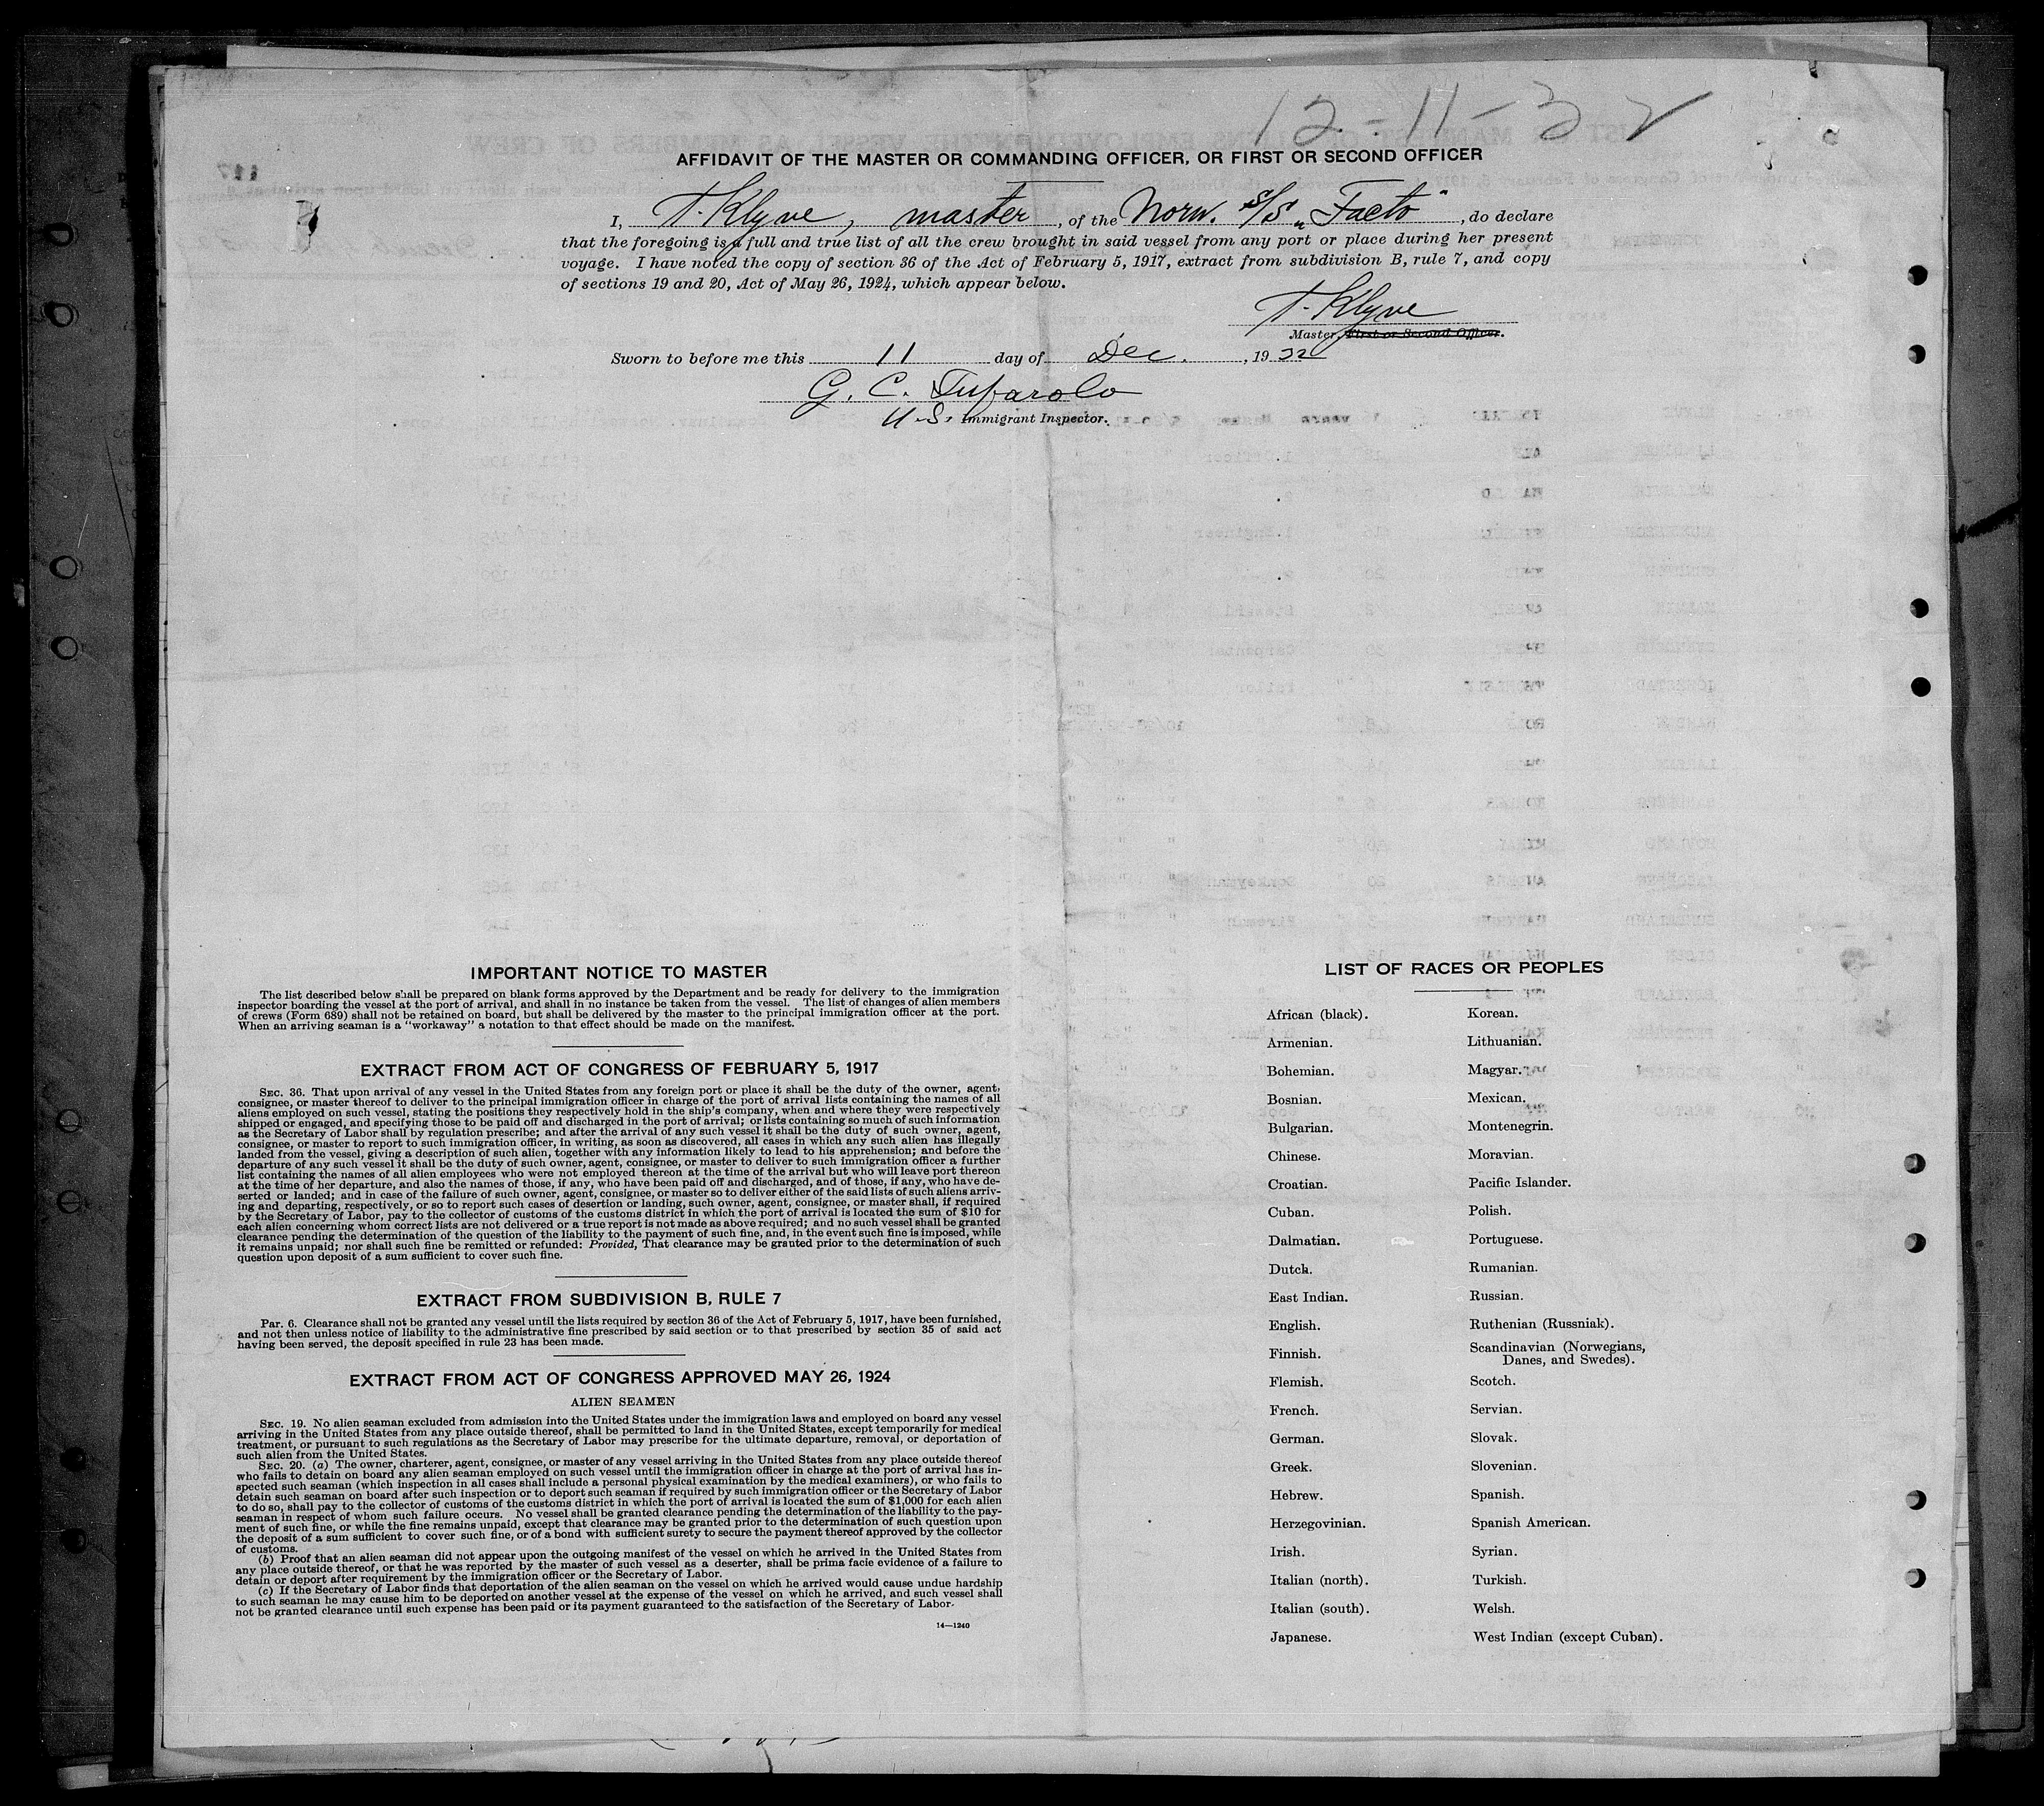 12-11-32
AFFIDAVIT OF THE MASTER OR COMMANDING OFFICER, OR FIRST OR SECOND OFFICER
I, T. Klyve, master, of the Norw. S/S "Facto", do declare
that the foregoing is a full and true list of all the crew brought in said vessel from any port or place during her present
voyage. I have noted the copy of section 36 of the Act of February 5, 1917, extract from subdivision B, rule 7, and copy
of sections 19 and 20, Act of May 26, 1924, which appear below.
T. Klyve
Master, First or Second Officer.
Sworn to before me this 11 day of Dec., 1932
G. C. Tufarolo
U.S. Immigrant Inspector.
IMPORTANT NOTICE TO MASTER
The list described below shall be prepared on blank forms approved by the Department and be ready for delivery to the immigration
inspector boarding the vessel at the port of arrival, and shall in no instance be taken from the vessel. The list of changes of alien members
of crews (Form 689) shall not be retained on board, but shall be delivered by the master to the principal immigration officer at the port.
When an arriving seaman is a "workaway" a notation to that effect should be made on the manifest.
EXTRACT FROM ACT OF CONGRESS OF FEBRUARY 5, 1917
SEC. 36. That upon arrival of any vessel in the United States from any foreign port or place it shall be the duty of the owner, agent,
consignee, or master thereof to deliver to the principal immigration officer in charge of the port of arrival lists containing the names of all
aliens employed on such vessel, stating the positions they respectively hold in the ship's company, when and where they were respectively
shipped or engaged, and specifying those to be paid off and discharged in the port of arrival; or lists containing so much of such information
as the Secretary of Labor shall by regulation prescribe; and after the arrival of any such vessel it shall be the duty of such owner, agent,
consignee, or master to report to such immigration officer, in writing, as soon as discovered, all cases in which any such alien has illegally
landed from the vessel, giving a description of such alien, together with any information likely to lead to his apprehension; and before the
departure of any such vessel it shall be the duty of such owner, agent, consignee, or master to deliver to such immigration officer a further
list containing the names of all alien employees who were not employed thereon at the time of the arrival but who will leave port thereon
at the time of her departure, and also the names of those, if any, who have been paid off and discharged, and of those, if any, who have de-
serted or landed; and in case of the failure of such owner, agent, consignee, or master so to deliver either of the said lists of such aliens arriv-
ing and departing, respectively, or so to report such cases of desertion or landing, such owner, agent, consignee, or master shall, if required
by the Secretary of Labor, pay to the collector of customs of the customs district in which the port of arrival is located the sum of $10 for
each alien concerning whom correct lists are not delivered or a true report is not made as above required; and no such vessel shall be granted
clearance pending the determination of the question of the liability to the payment of such fine, and, in the event such fine is imposed, while
it remains unpaid; nor shall such fine be remitted or refunded: Provided, That clearance may be granted prior to the determination of such
question upon deposit of a sum sufficient to cover such fine.
EXTRACT FROM SUBDIVISION B, RULE 7
Par. 6. Clearance shall not be granted any vessel until the lists required by section 36 of the Act of February 5, 1917, have been furnished,
and not then unless notice of liability to the administrative fine prescribed by said section or to that prescribed by section 35 of said act
having been served, the deposit specified in rule 23 has been made.
EXTRACT FROM ACT OF CONGRESS APPROVED MAY 26, 1924
ALIEN SEAMEN
SEC. 19. No alien seaman excluded from admission into the United States under the immigration laws and employed on board any vessel
arriving in the United States from any place outside thereof, shall be permitted to land in the United States, except temporarily for medical
treatment, or pursuant to such regulations as the Secretary of Labor may prescribe for the ultimate departure, removal, or deportation of
such alien from the United States.
SEC. 20. (a) The owner, charterer, agent, consignee, or master of any vessel arriving in the United States from any place outside thereof
who fails to detain on board any alien seaman employed on such vessel until the immigration officer in charge at the port of arrival has in-
spected such seaman (which inspection in all cases shall include a personal physical examination by the medical examiners), or who fails to
detain such seaman on board after such inspection or to deport such seaman if required by such immigration officer or the Secretary of Labor
to do so, shall pay to the collector of customs of the customs district in which the port of arrival is located the sum of $1,000 for each alien
seaman in respect of whom such failure occurs. No vessel shall be granted clearance pending the determination of the liability to the pay-
ment of such fine, or while the fine remains unpaid, except that clearance may be granted prior to the determination of such question upon
the deposit of a sum sufficient to cover such fine, or of a bond with sufficient surety to secure the payment thereof approved by the collector
of customs.
(b) Proof that an alien seaman did not appear upon the outgoing manifest of the vessel on which he arrived in the United States from
any place outside thereof, or that he was reported by the master of such vessel as a deserter, shall be prima facie evidence of a failure to
detain or deport after requirement by the immigration officer or the Secretary of Labor.
(c) If the Secretary of Labor finds that deportation of the alien seaman on the vessel on which he arrived would cause undue hardship
to such seaman he may cause him to be deported on another vessel at the expense of the vessel on which he arrived, and such vessel shall
not be granted clearance until such expense has been paid or its payment guaranteed to the satisfaction of the Secretary of Labor.
14—1240
LIST OF RACES OR PEOPLES
African (black).
Armenian.
Bohemian.
Bosnian.
Bulgarian.
Chinese.
Croatian.
Cuban.
Dalmatian.
Dutch.
East Indian.
English.
Finnish.
Flemish.
French.
German.
Greek.
Hebrew.
Herzegovinian.
Irish.
Italian (north).
Italian (south).
Japanese.
Korean.
Lithuanian.
Magyar.
Mexican.
Montenegrin.
Moravian.
Pacific Islander.
Polish.
Portuguese.
Rumanian.
Russian.
Ruthenian (Russniak).
Scandinavian (Norwegians,
Danes, and Swedes).
Scotch.
Servian.
Slovak.
Slovenian.
Spanish.
Spanish American.
Syrian.
Turkish.
Welsh.
West Indian (except Cuban).